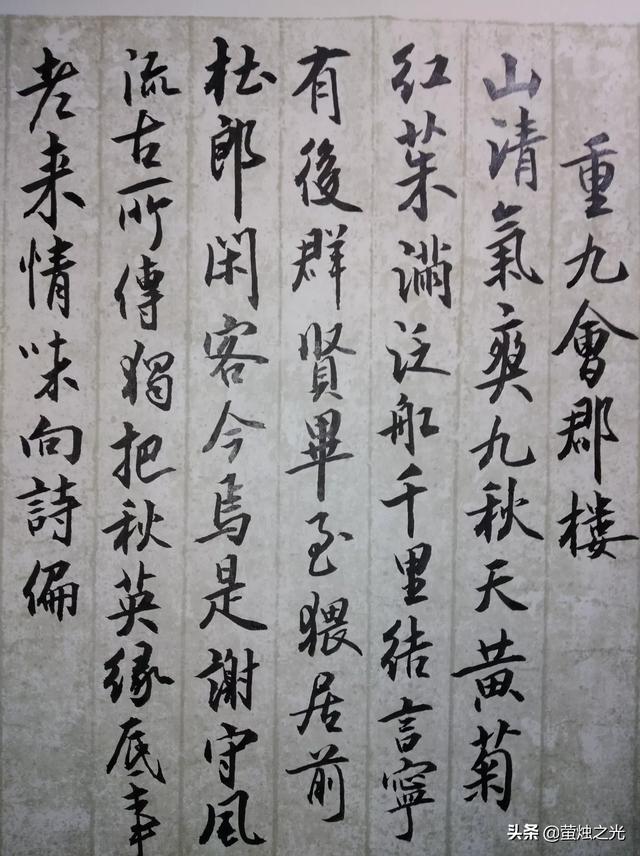 重九會郡楼
山清氣爽九秋天黄菊
红茱滿泛舩千里结言寧
有後群賢畢至猥居前
杜郎闲客今焉是謝守风
流古所傳獨把秋英缘底事
老来情味向詩偏
头条 @萤烛之光